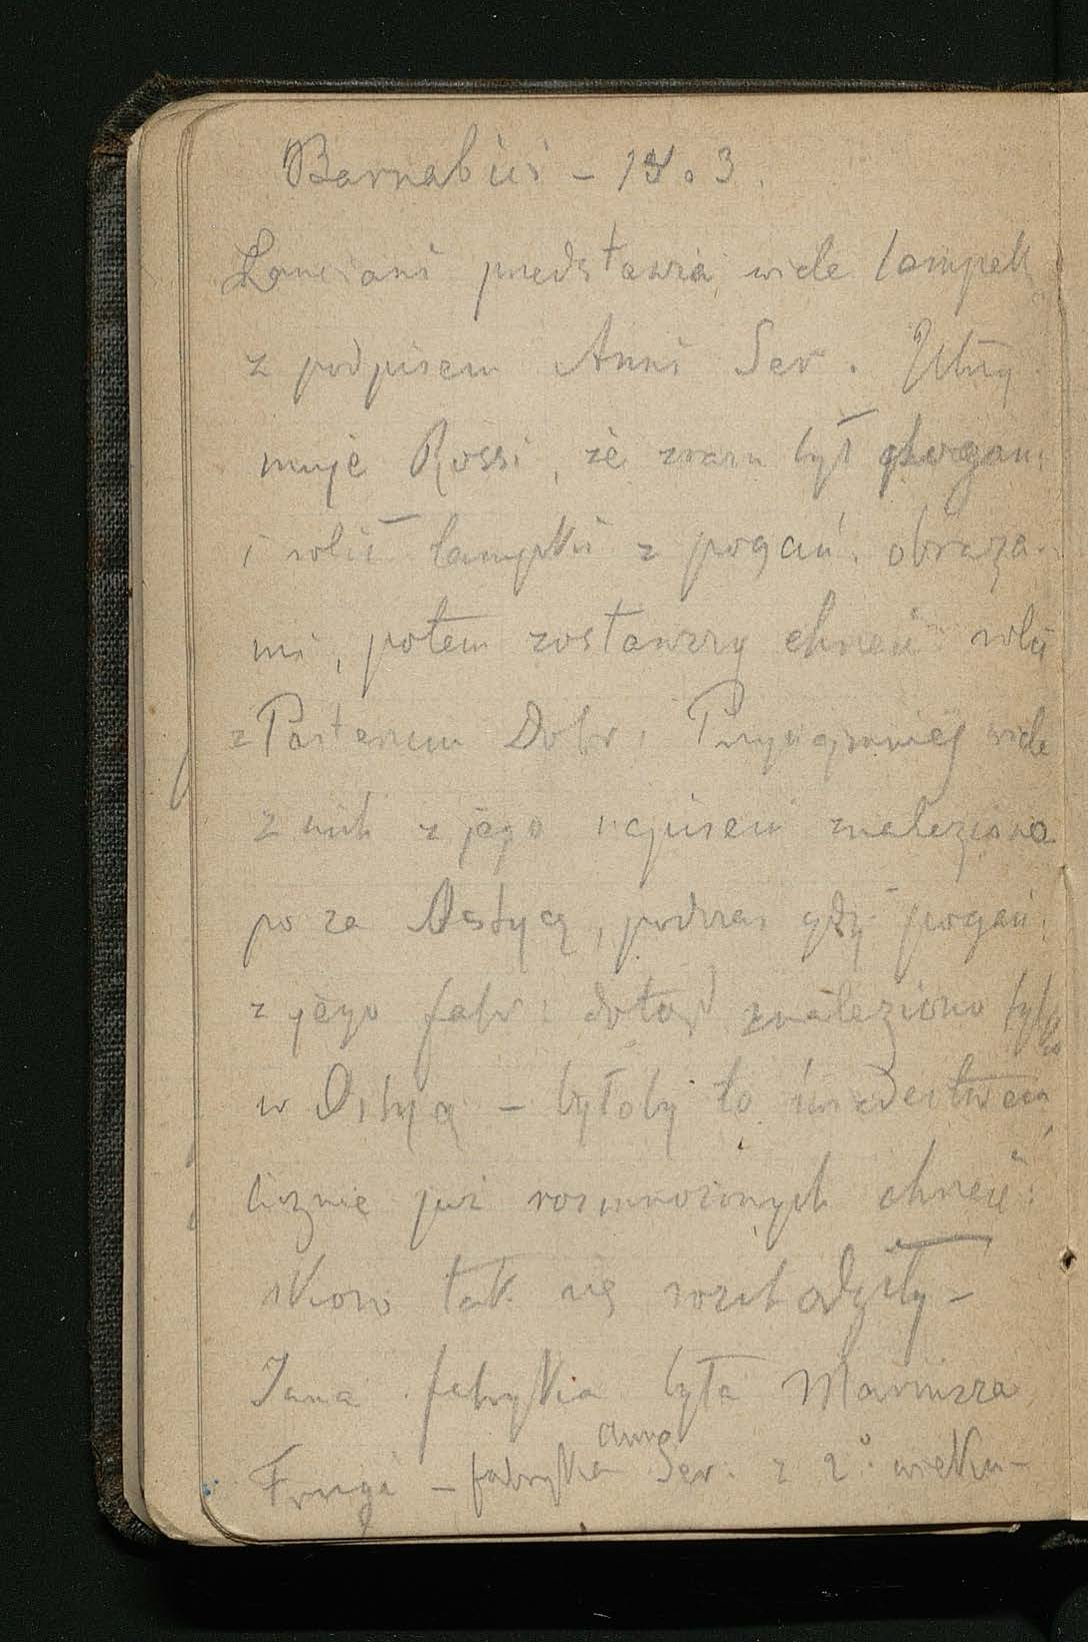 Barnabici – 18. 3.
Lanciani przedstawia wiele lampek
z podpisem Anni Ser. Utrzy
muje Rossi, że zrazu był
i robił lampki z pogań. obraza
mi, potem zostawszy chrześ: robił
z Pasterzem Dobr. Przynajmniej wiele
z nich z jego napisem znaleziono
po za Ostyą, podczas gdy pogań.
z jego fabr: dotąd znaleziono tylko
w Ostyą – byłoby to świadectwem
licznie już rozmnożonych chrześ:
skoro tak się rozchodziły –
Inna fabryka była Marcusza
Frugi – fabryka Anna Ser. z 2º wieku –